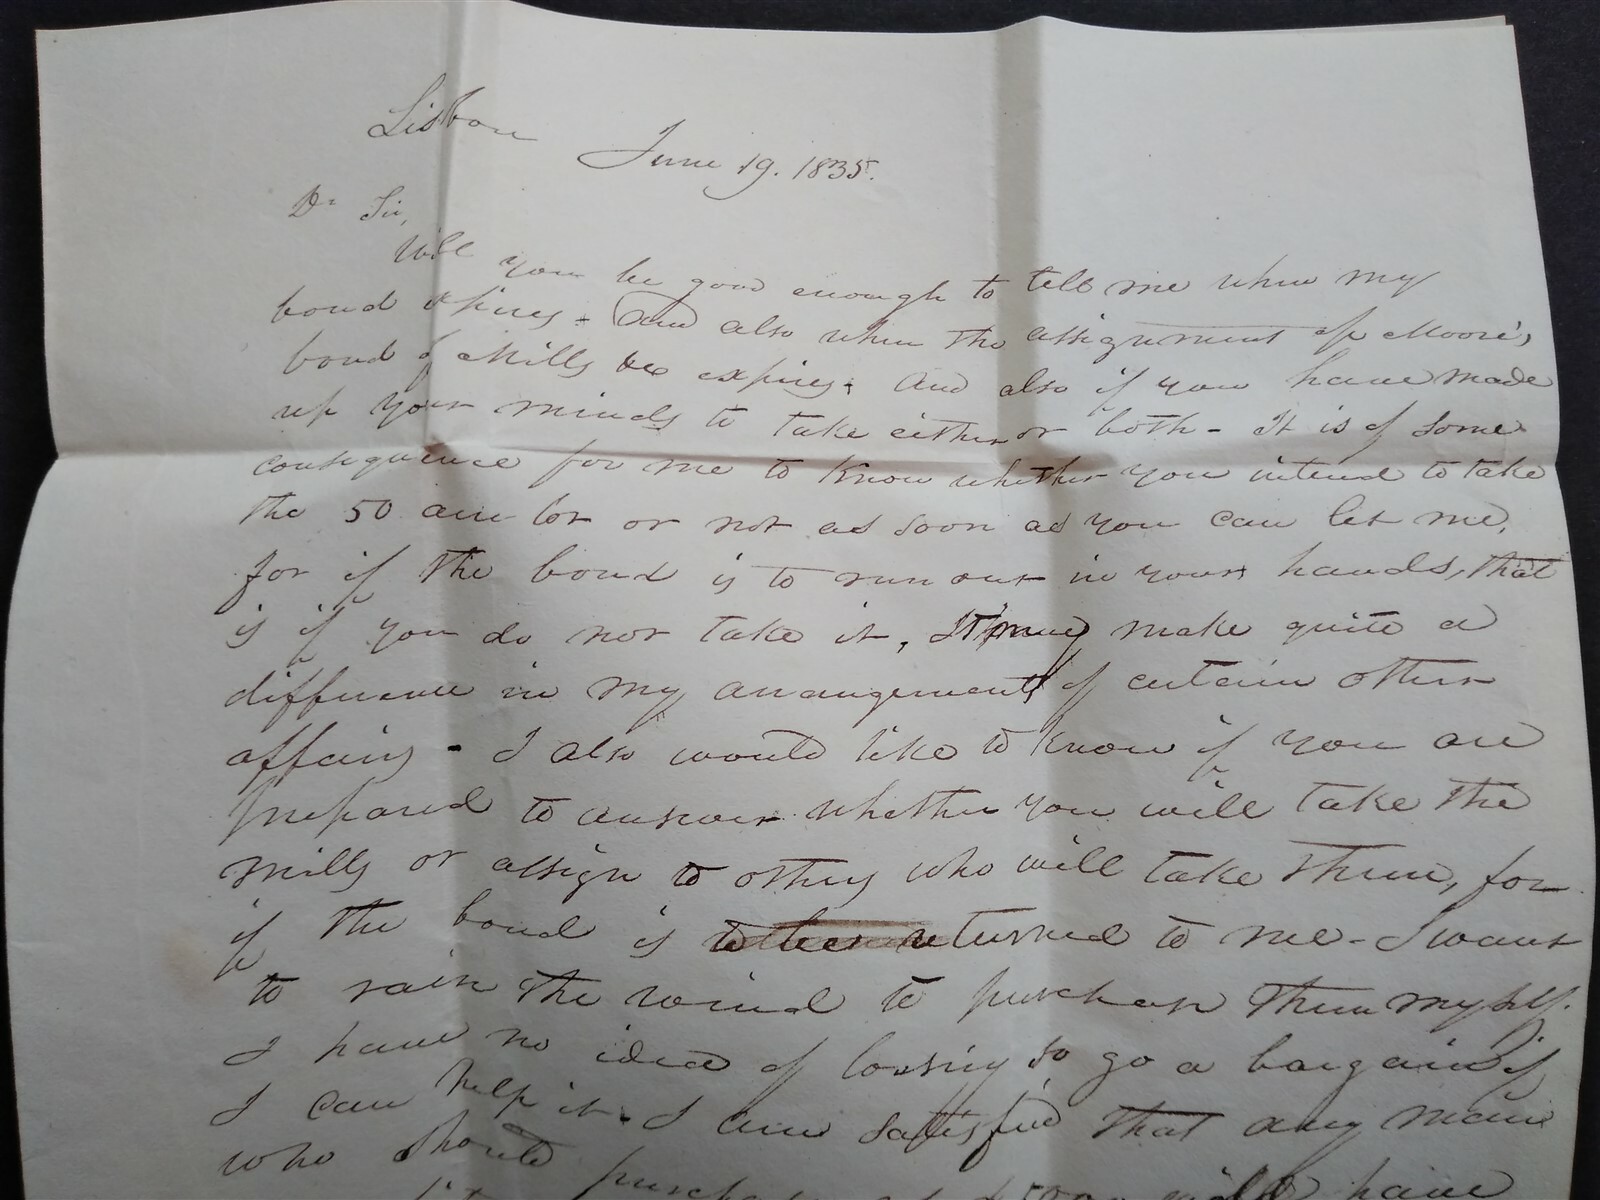 Lisbon
June 19. 1835.
Dr Sir,
Will you be good enough to tell me when my
bond expires. And also when the assignment of Moore's
bond of Mills &c expires. And also if you have made
up your minds to take either or both - It is of some
consequence for me to know whether you intend to take
the 50 acre lot or not as soon as you can let me,
for if the bond is to run out in your hands, that
is if you do not take it, It may make quite a
difference in my arrangements of certain other
affairs - I also would like to know if you are
prepared to answer whether you will take the
mills or assign to others who will take them, for
if the bond is returned to me - I want
to rain the wind to purchase them myself.
I have no idea of loosing so go a bargain if
I can help it. I am satisfied that any man
who should purchase will have